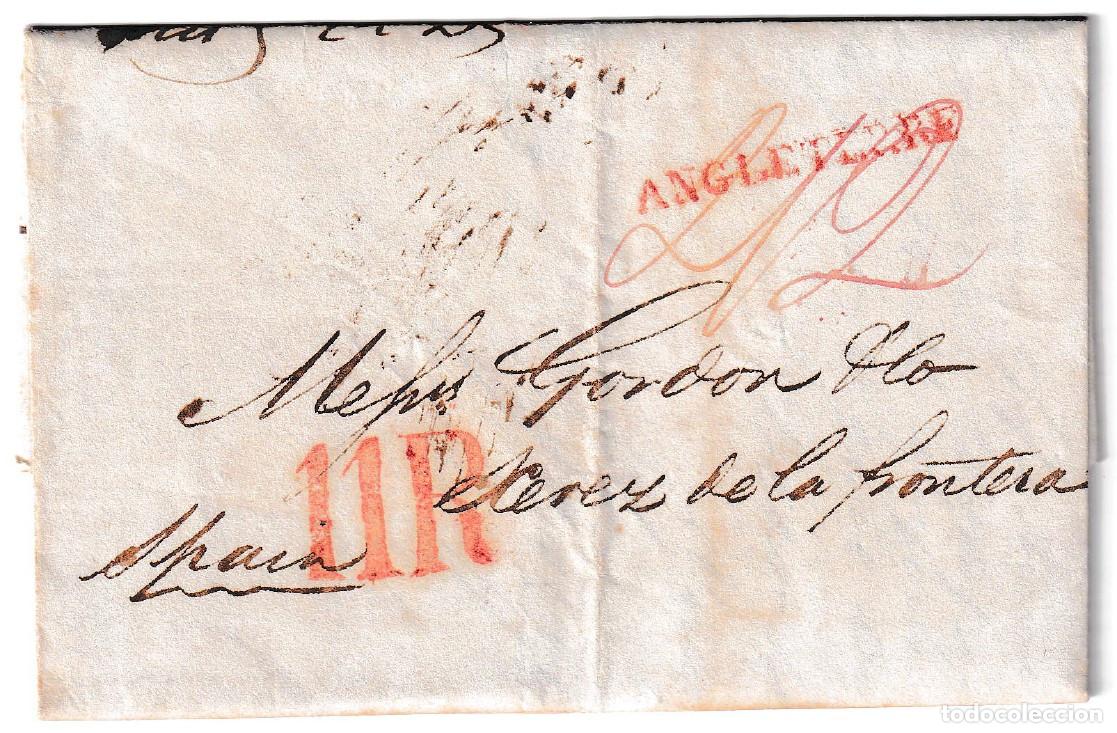 ANGLETERRE
2/2
Messrs Gordon & Co
Xerez de la frontera
11R
Spain
todocoleccion